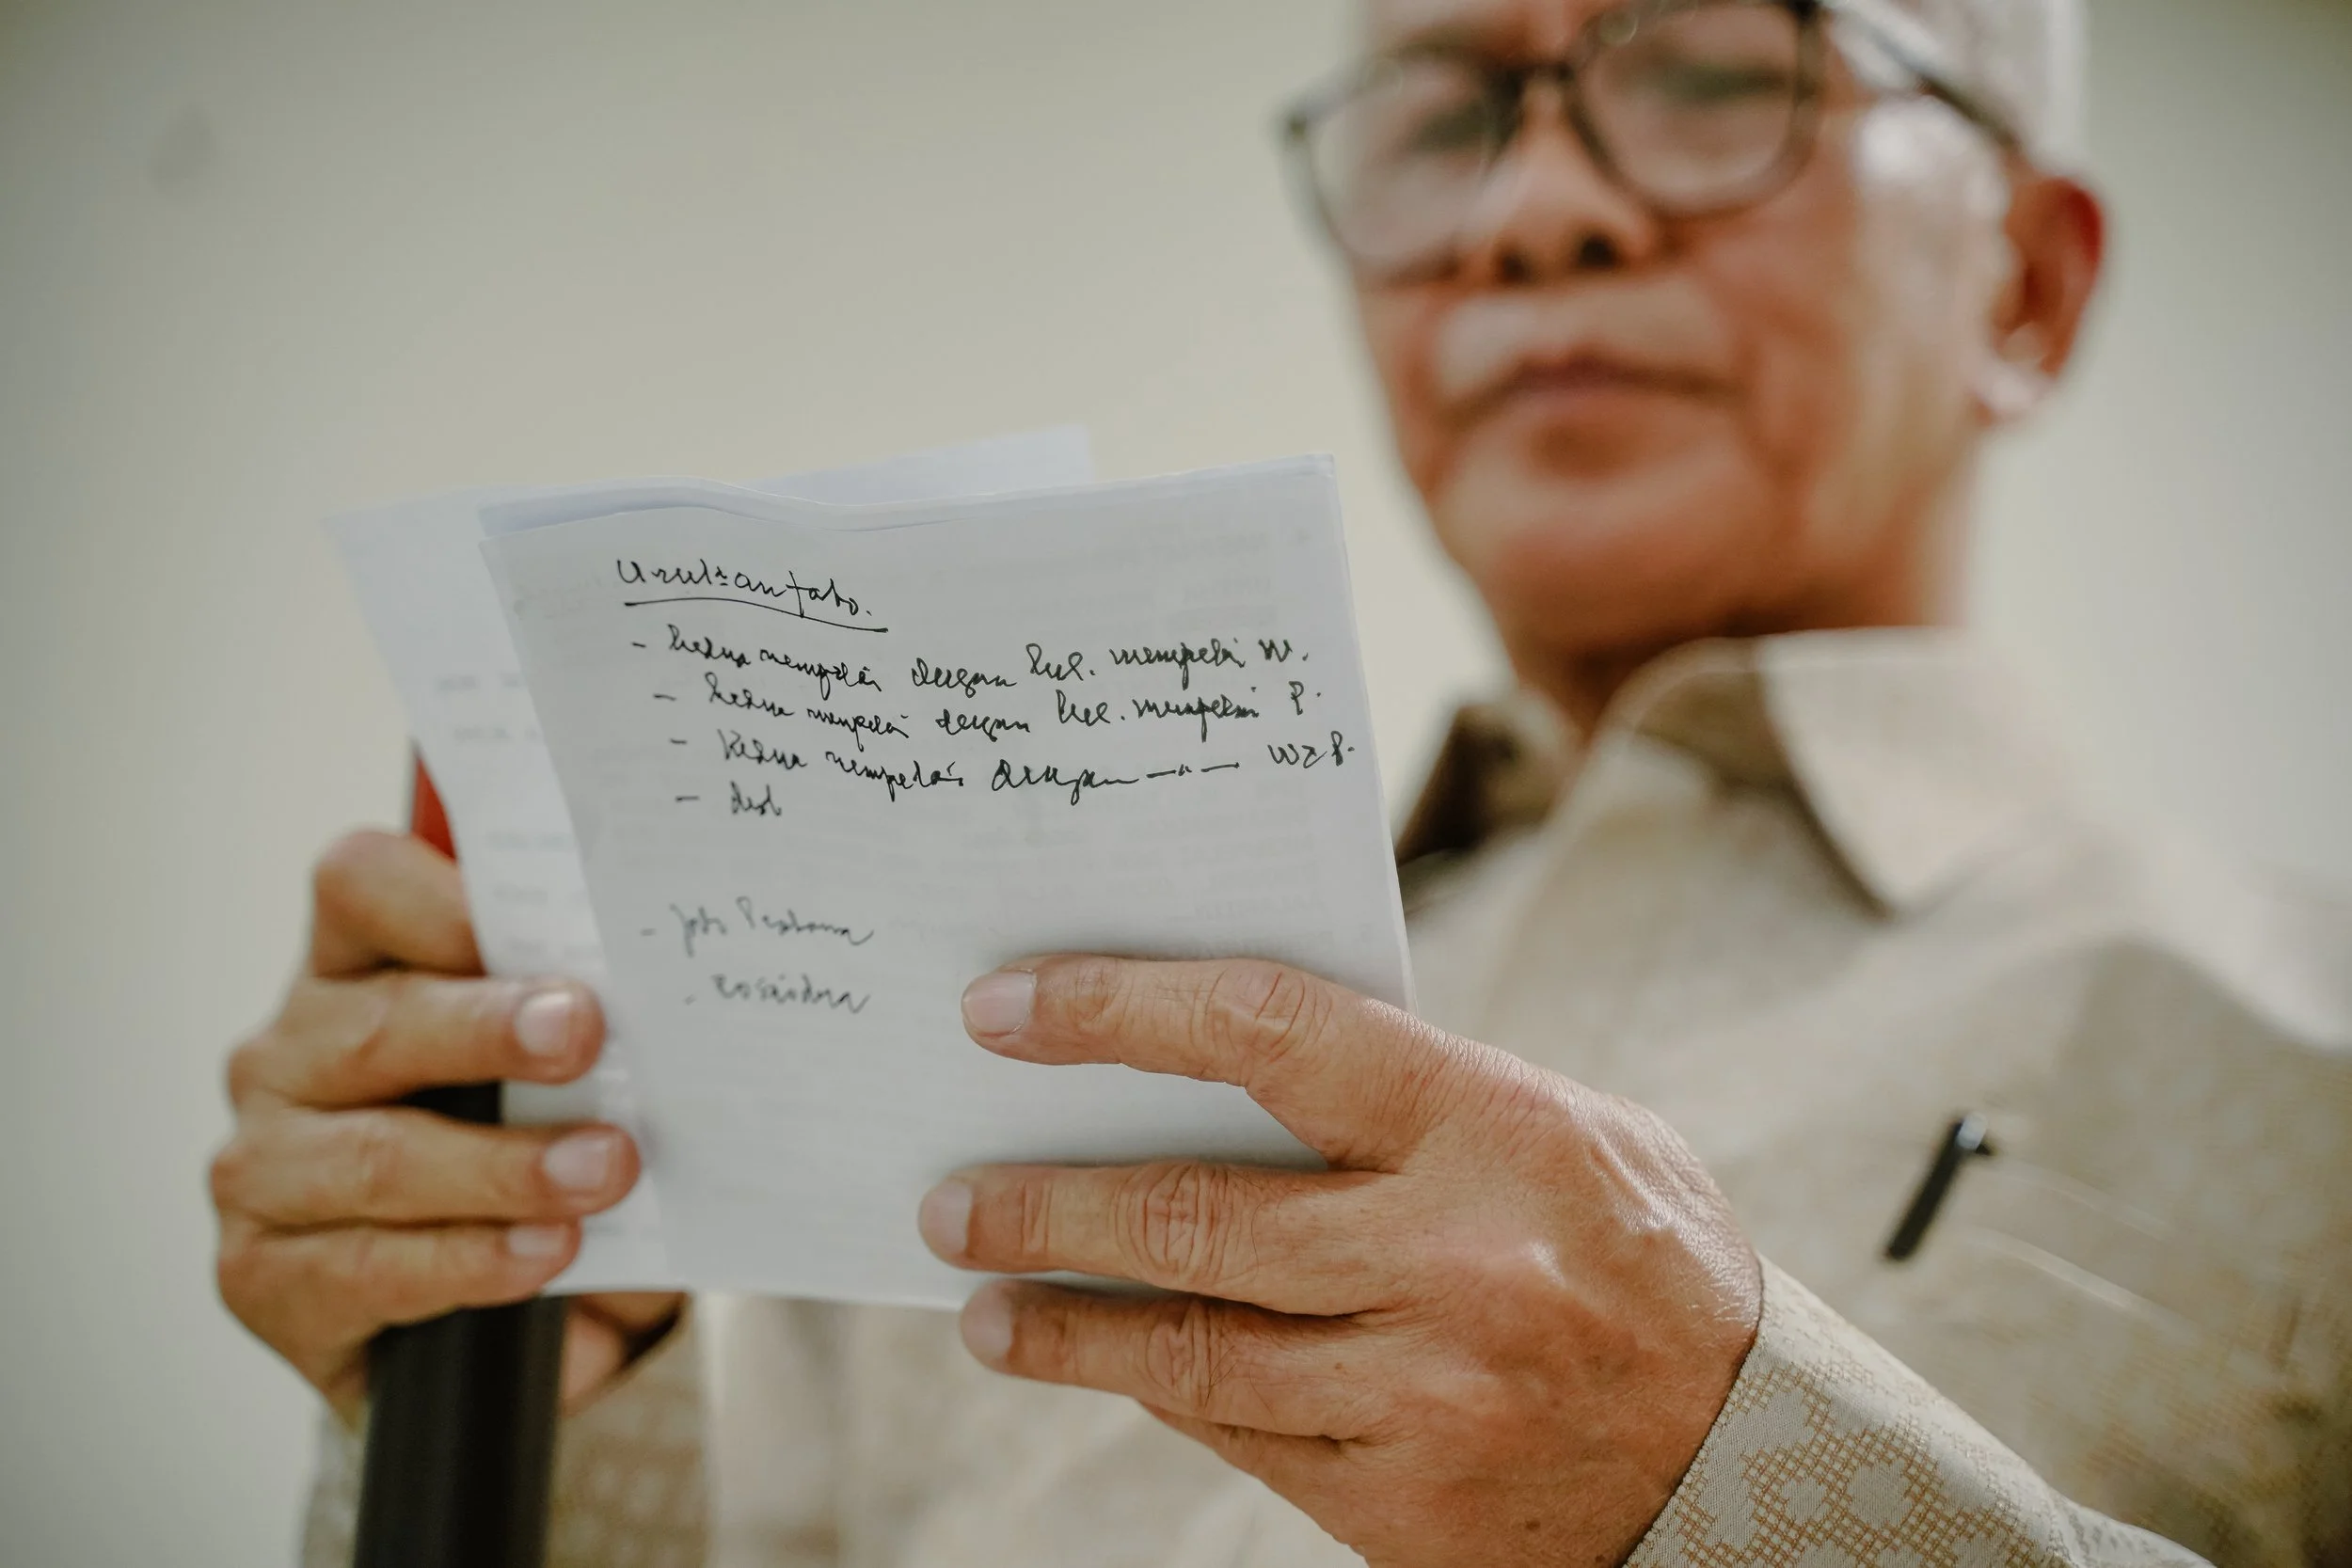 Urutan foto.
- kedua mempelai dengan kel. mempelai W.
- kedua mempelai dengan kel. mempelai P.
- Kedua mempelai dengan —"— W & P.
- dst